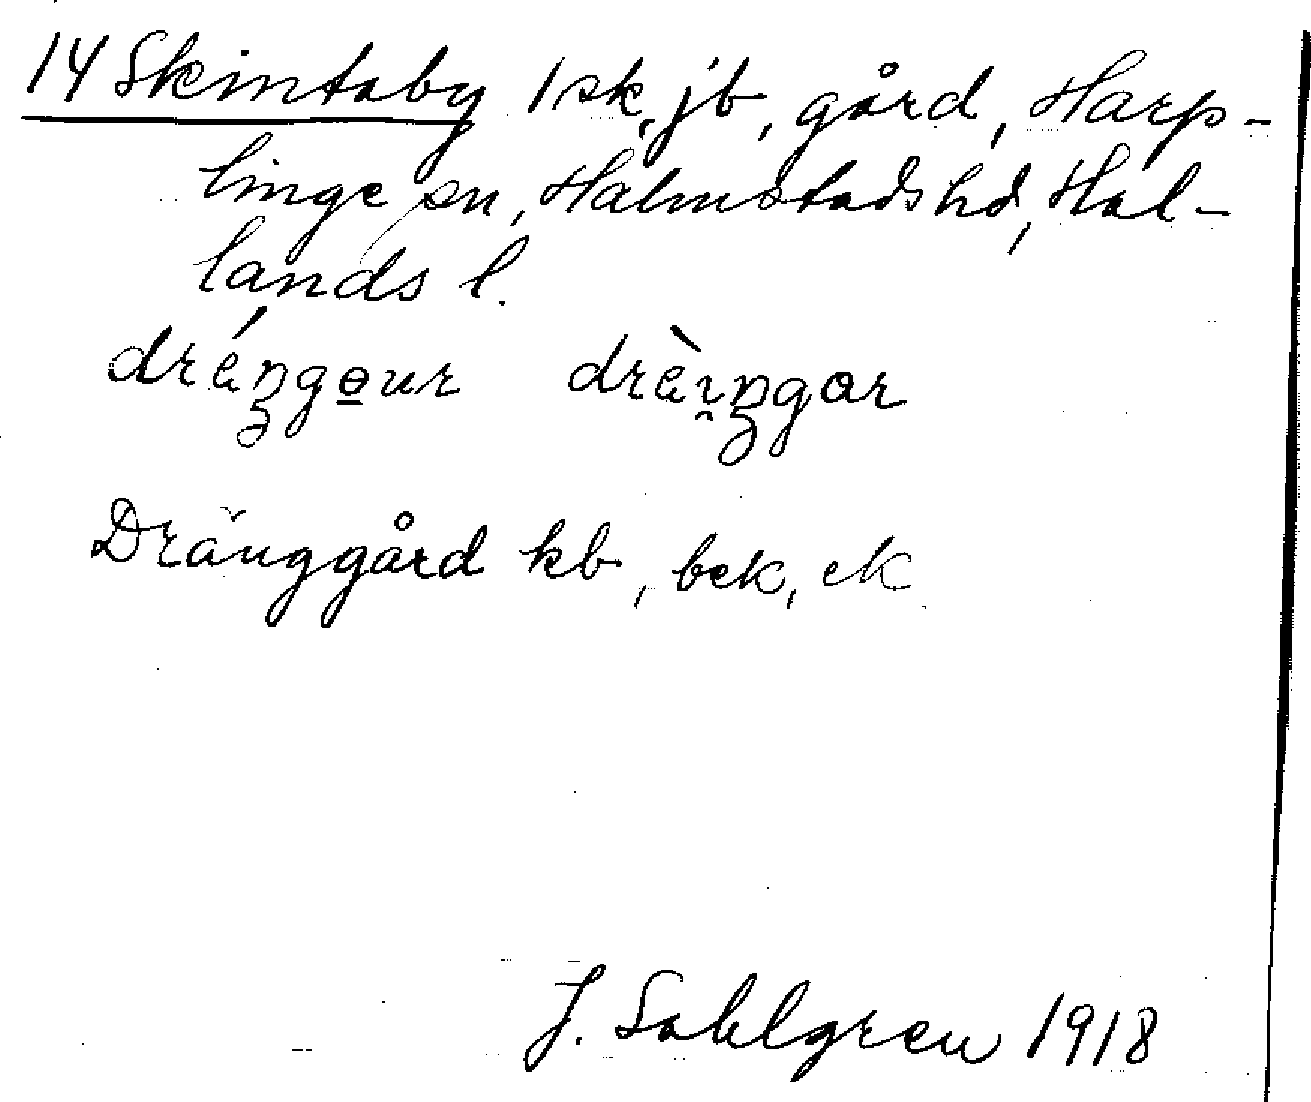 14 Skintaby 1 sk, jb, gård, Harp-
linge sn, Halmstads hd, Hal-
lands l.
dréŋgɵur drèı̯ŋgar
Dränggård kb, bek, ek
J. Sahlgren 1918